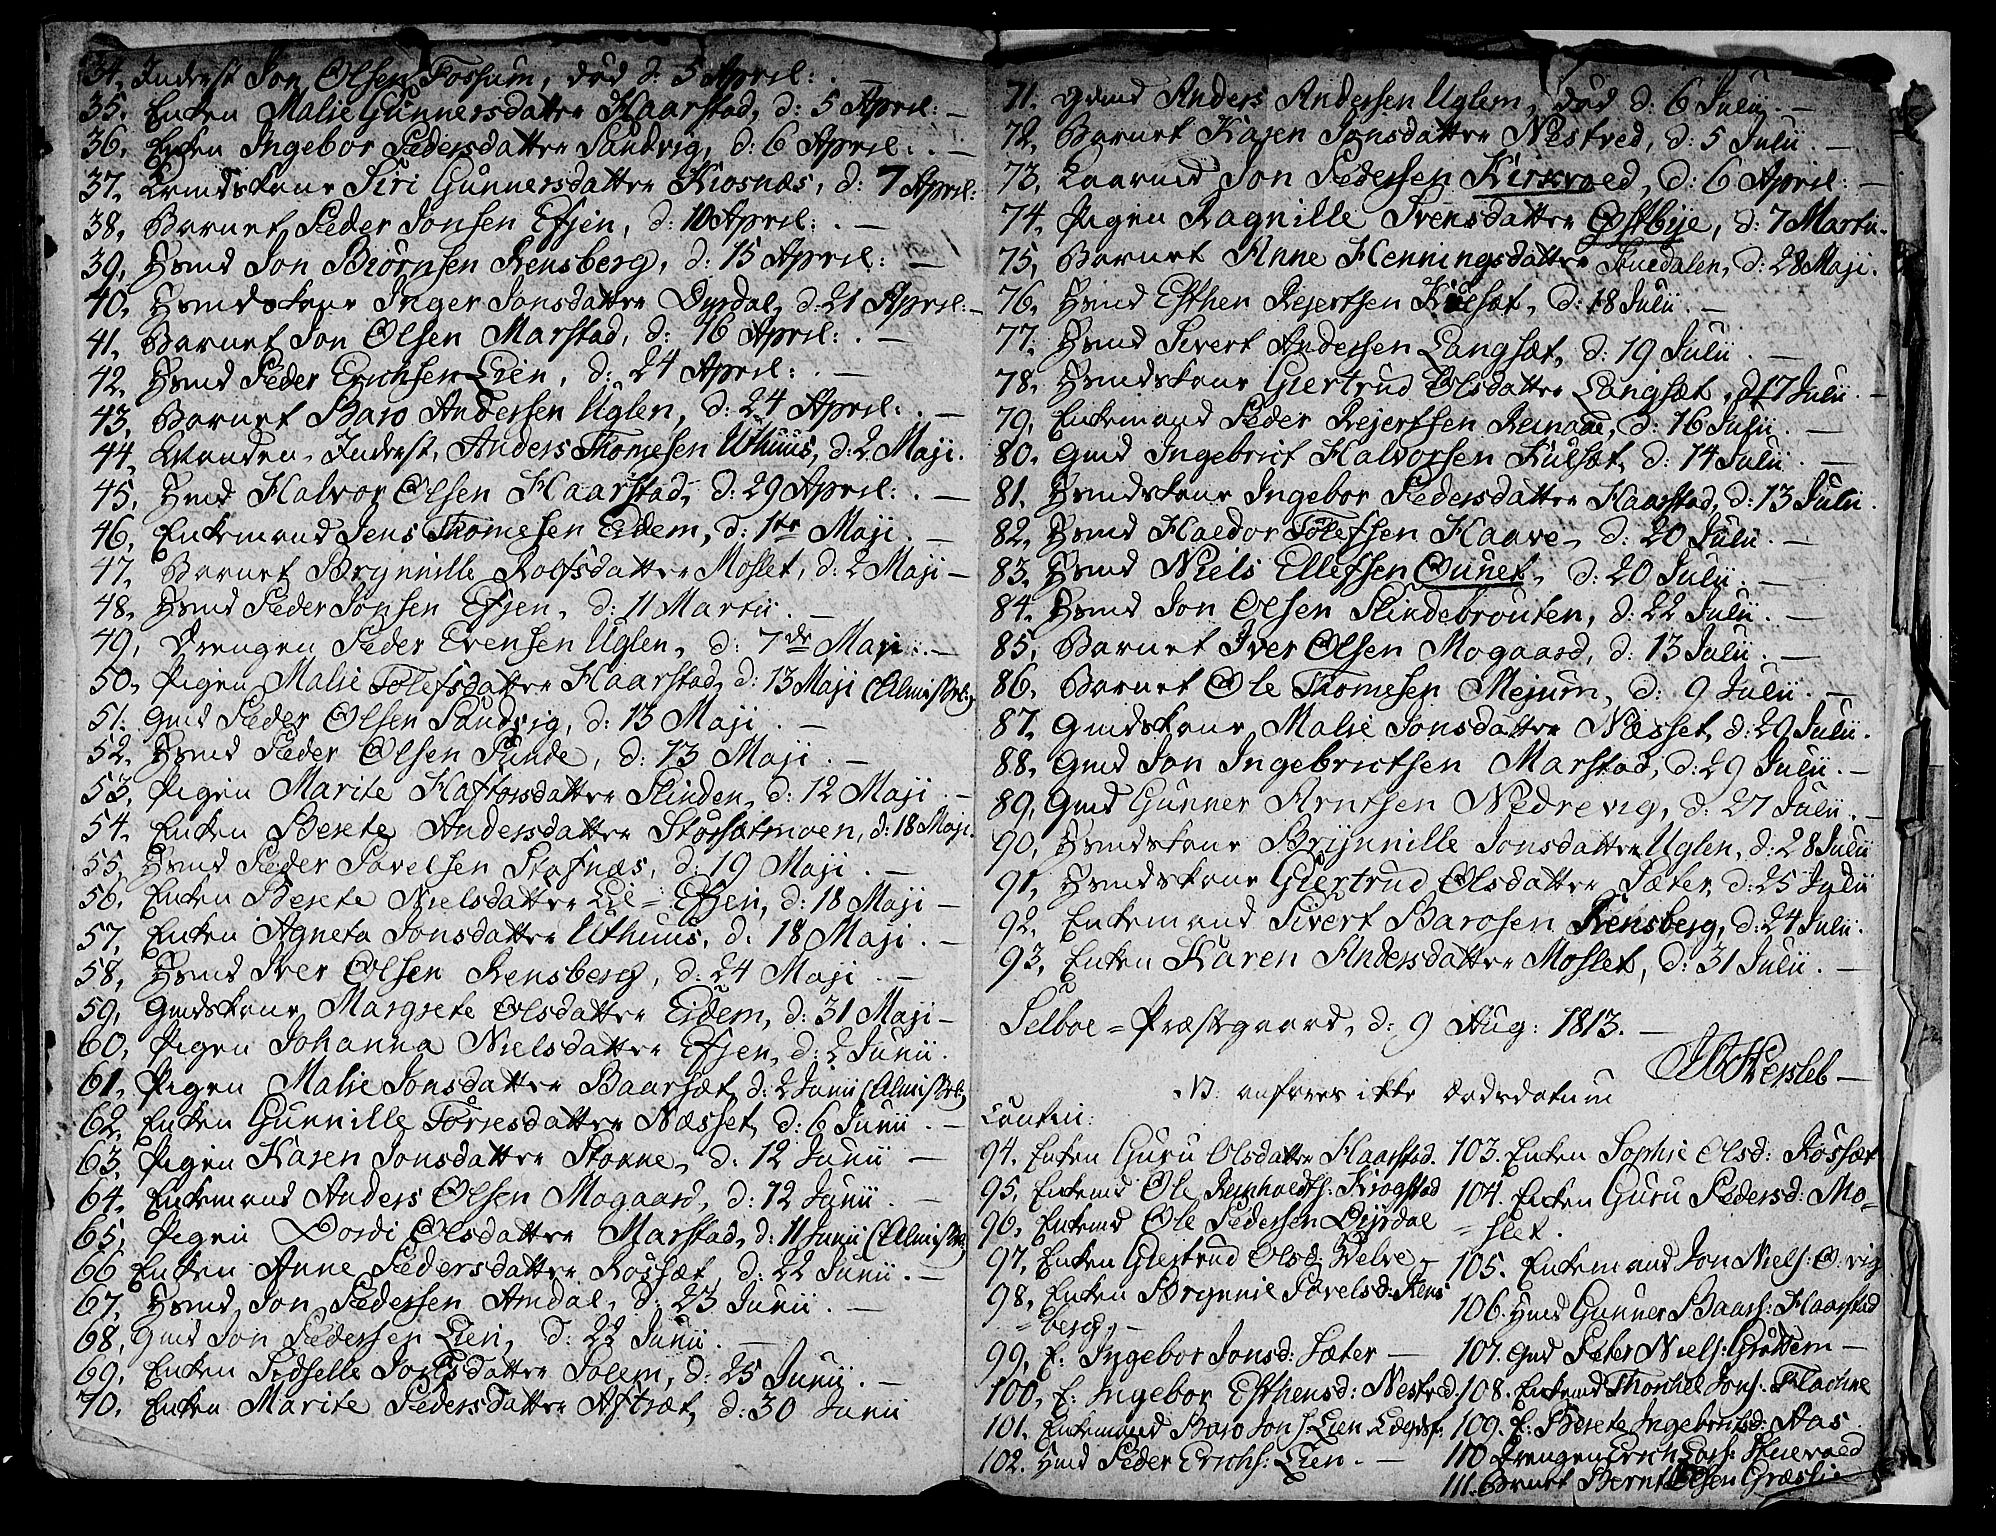 34. Inderst Jon Olsen Fossum, död d: 5 April: . —
35. Enken Malie Gunnersdatter Haarstad, d: 5 April: —
36. Enken Ingebor Pedersdatter Sandvig, d: 6 April: . —
37. Siri Gunnersdatter Kiosnæs, d: 7 April:
38. Barnet Peder Jonsen Efjen, d: 10 April: . —
39. Hsmd Jon Biörnsen Rensberg, d: 15 April: —
40. Hsmdskone Inger Jonsdatter Dyrdal, d: 21 April: —
41. Barnet Jon Olsen Marstad, d: 16 April: . —
42. Hsmd Peder Erichsen Lien, d: 24 April: . —
43. Barnet Baro Andersen Uglen, d: 24 April: . —
44. Inderst, Anders Thomesen Uthuus, d: 2 Maji.
45. Hmd Halvor Olsen Haarstad, d: 29 April: . —
46. Enkemand Jens Thomesen Eidem, d: 1te Maji . —
47. Barnet Brynnille Rolfsdatter Moslet, d: 2 Maji —
48. Hsmd Peder Jonsen Efjen, d: 11 Martii . —
49. Drengen Peder Evensen Uglen, d: 7de Maji . —
50. Pigen Malie Tolefsdatter Haarstad, d: 13 Maji
51. Gmd Peder Olsen Sandvig, d: 13 Maji . —
52. Hsmd Peder Olsen Sunde, d: 13 Maji . —
53. Pigen Marite Haftorsdatter Slinden, d: 12 Maji . —
54. Enken Berete Andersdatter Storsætmoen, d: 18 Maji.
55. Hsmd Peder Povelsen Stafnæs, d: 19 Maji . —
56. Enken Berete Nielsdatter Lil = Efjen, d: 18 Maji —
57. Enken Agneta Jonsdatter Uthuus, d. 18 Maji . —
58. Hsmd Iver Olsen Rensberg, d: 24 Maji . —
59. Gmdskone Margrete Olsdatter Eidem, d: 31 Maji —
60. Pigen Johanna Nielsdatter Efjen, d: 2 Junii.
61. Pigen Malie Jonsdatter Baarsæt, d: 2 Junii
62. Enken Gunnille Torresdatter Næsset, d: 6 Junii . —
63. Pigen Karen Jonsdatter Stokke, d: 12 Junii —
64. Enkemand Anders Olsen Mogaard, d: 12 Junii . —
65. Pigen Dordi Olsdatter Marstad, d: 11 Junii
66 Enken Anne Pedersdatter Rosset, d: 22 Junii . —
67. Hsmd Jon Pedersen Amdal, d: 23 Junii . —
68. Gmd Jon Pedersen Lien, d: 22 Junii . —
69. Enken Sidselle Joensdatter Solem, d: 25 Junii . —
70. Enken Marite Pedersdatter Aftræt, d: 30 Junii
71. Gdmd Anders Andersen Uglem, död d: 6 Julii . —
72. Barnet Karen Jonsdatter Nestved, d: 5 Julii . —
73. Jon Pedersen Kirkvold, d: 6 April: —
74. Pigen Ragnille Svensdatter Østbye, d: 7 Martii.
75. Barnet Anne Henningsdatter Stuedalen, d: 28 Maji.
76. Hsmd Esthen Rejertsen Kulset, d: 18 Julii . —
77. Hsmd Sivert Andersen Langsæt, d: 19 Julii . —
78. Hsmdskone Giertrud Olsdatter Langsæt, d: 17 Julii . —
79. Enkemand Peder Rejertsen Renaae, d: 16 Julii . —
80. Gmd Ingebrict Halvorsen Kulset, d: 14 Julii . —
81. Hsmdskone Ingebor Pedersdatter Haarstad, d: 13 Julii.
82. Hsmd Haldor Tolefsen Haave, d: 20 Julii . —
83. Hsmd Niels Ellefsen Ounet, d: 20 Julii . —
84. Hsmd Jon Olsen Slindebrouten, d: 22 Julii . —
85. Barnet Iver Olsen Mogaard, d: 13 Julii . —
86. Barnet Ole Thomesen Mejum, d: 9 Julii . —
87. Gmdskone Malie Jonsdatter Næsset, d: 29 Julii.
88. Gmd Jon Ingebrictsen Marstad, d: 29 Julii . —
89. Gmd Gunner Arntsen Nedrevig, d: 27 Julii . —
90. Hsmdskone Brynnille Jonsdatter Uglen, d: 28 Julii
91. Hsmdskone Giertrud Olsdatter Sæter, d: 25 Julii
92. Enkemand Sivert Barosen Rensberg, d: 24 Julii.
93. Enken Karen Andersdatter Moslet, d: 31 Julii . —
Selboe = Præstegaard, d: 9 Aug: 1813. —
Hersleb —
anföres ikke Dødsdatum
94. Enken Guru Olsdatter Haarstad.
95. Enkemd Ole Reinholdts: Krogstad
96. Enkemd Ole Pedersen Dyrdal
97. Enken Giertrud Olsd: Velve —
98. Enken Brynnil Povelsd: Rens
= berg, —
99. E: Ingebor Jonsd: Sæter —
100. E: Ingebor Esthensd: Nestved.
101. Enkemand Baro Jons: Lien
102. Hmd Peder Erichs: Lien . —
103. Enken Sophie Olsd: Rossæt
104. Enken Guru Pedersd: Mo-
= slet.
105. Enkemand Jon Niels: O: vig
106. Hmd Gunner Baars: Haarstad
107. Gmd Peter Niels: Grøttem —
108. Enkemd Thorkel Jons: Flachne
109. E: Berete Ingebrictsd: Aas
110 Drengen Erich Lars: Stuevold
111. Barnet Bernt Olsen Græslie